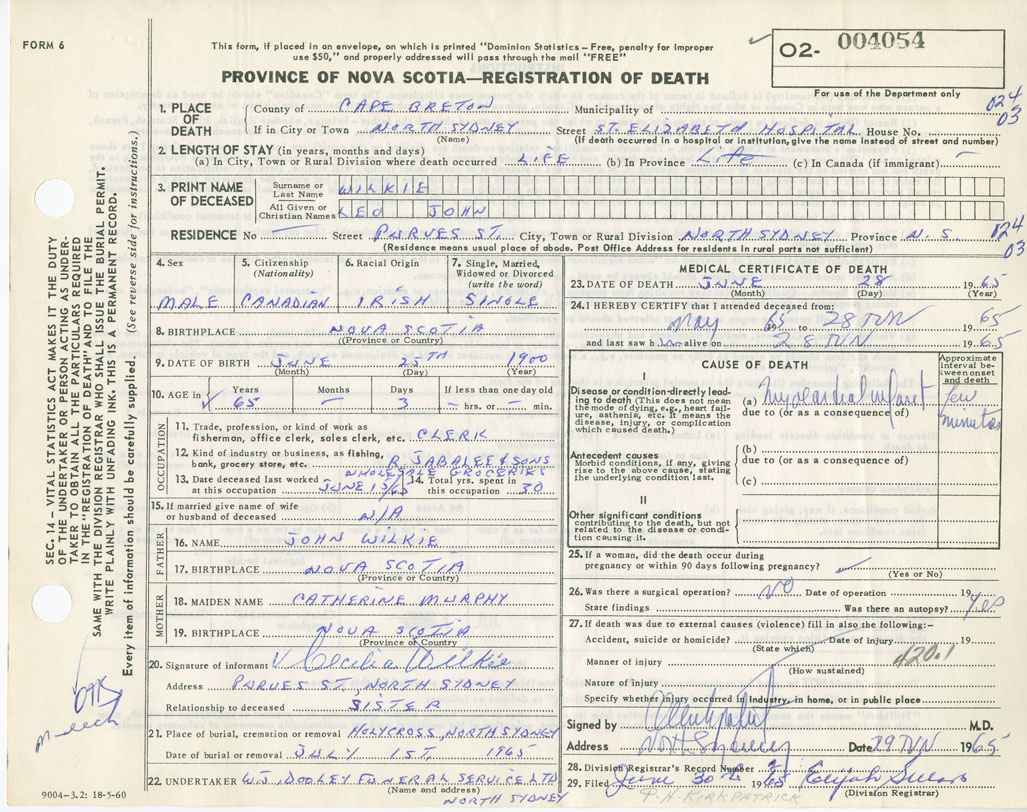 FORM 6
This form, if placed in an envelope, on which is printed "Dominion Statistics – Free, penalty for improper
use $50," and properly addressed will pass through the mail "FREE"
O2- 004054
PROVINCE OF NOVA SCOTIA—REGISTRATION OF DEATH
For use of the Department only
024
03
1. PLACE OF DEATH
County of CAPE BRETON Municipality of
If in City or Town NORTH SYDNEY Street ST. ELIZABETH HOSPITAL House No.
(Name) (If death occurred in a hospital or institution, give the name instead of street and number)
2. LENGTH OF STAY (in years, months and days)
(a) In City, Town or Rural Division where death occurred LIFE (b) In Province Life (c) In Canada (if immigrant) —
3. PRINT NAME OF DECEASED
Surname or Last Name WILKIE
All Given or Christian Names LEO JOHN
RESIDENCE No — Street PURVES ST. City, Town or Rural Division NORTH SYDNEY Province N. S.
(Residence means usual place of abode. Post Office Address for residents in rural parts not sufficient)
024
03
4. Sex MALE
5. Citizenship (Nationality) CANADIAN
6. Racial Origin IRISH
7. Single, Married, Widowed or Divorced (write the word) SINGLE
8. BIRTHPLACE NOVA SCOTIA
((Province or Country)
9. DATE OF BIRTH JUNE 25TH 1900
(Month) (Day) (Year)
10. AGE in Years 65 Months — Days 3 If less than one day old — hrs. or — min.
OCCUPATION
11. Trade, profession, or kind of work as
fisherman, office clerk, sales clerk, etc. CLERK
12. Kind of industry or business, as fishing,
bank, grocery store, etc. R. JABALEE & SONS
WHOLESALE GROCERIES
13. Date deceased last worked at this occupation JUNE 15/65
14. Total yrs. spent in this occupation 30
15. If married give name of wife
or husband of deceased N/A
FATHER
16. NAME JOHN WILKIE
17. BIRTHPLACE NOVA SCOTIA
(Province or Country)
MOTHER
18. MAIDEN NAME CATHERINE MURPHY
19. BIRTHPLACE NOVA SCOTIA
(Province or Country)
20. Signature of informant Cecilia Wilkie
Address PURVES ST., NORTH SYDNEY
Relationship to deceased SISTER
21. Place of burial, cremation or removal HOLYCROSS, NORTH SYDNEY
Date of burial or removal JULY 1ST, 1965
22. UNDERTAKER W.J. DOOLEY FUNERAL SERVICE LTD
(Name and address)
NORTH SYDNEY
MEDICAL CERTIFICATE OF DEATH
23. DATE OF DEATH JUNE 28 1965
(Month) (Day) (Year)
24. I HEREBY CERTIFY that I attended deceased from:
May 65 to 28 JUN 1965
and last saw him alive on 28 JUN 1965
CAUSE OF DEATH
Approximate interval between onset and death
I
Disease or condition directly leading to death (This does not mean
the mode of dying, e.g., heart failure, asthenia, etc. It means the
disease, injury, or complication which caused death.)
(a) Myocardial infarct few minutes
due to (or as a consequence of)
Antecedent causes
Morbid conditions, if any, giving rise to the above cause, stating
the underlying condition last.
(b)
due to (or as a consequence of)
(c)
II
Other significant conditions
contributing to the death, but not related to the disease or condition causing it.
25. If a woman, did the death occur during
pregnancy or within 90 days following pregnancy?
(Yes or No)
26. Was there a surgical operation? NO Date of operation 19
State findings Was there an autopsy? Yes
27. If death was due to external causes (violence) fill in also the following:-
Accident, suicide or homicide? Date of injury 19
(State which)
420.1
Manner of injury
(How sustained)
Nature of injury
Specify whether injury occurred in industry, in home, or in public place
Signed by M.D.
Address North Sydney Date 29 JUN 1965
28. Division Registrar's Record Number
29. Filed June 30th 1965 Elijah
(Division Registrar)
P. H. KIRKPATRICK
SEC. 14 – VITAL STATISTICS ACT MAKES IT THE DUTY
OF THE UNDERTAKER OR PERSON ACTING AS UNDER-
TAKER TO OBTAIN ALL THE PARTICULARS REQUIRED
IN THE "REGISTRATION OF DEATH" AND TO FILE THE
SAME WITH THE DIVISION REGISTRAR WHO SHALL ISSUE THE BURIAL PERMIT.
WRITE PLAINLY WITH UNFADING INK. THIS IS A PERMANENT RECORD.
Every item of information should be carefully supplied. (See reverse side for instructions.)
9004-3.2: 18-5-60